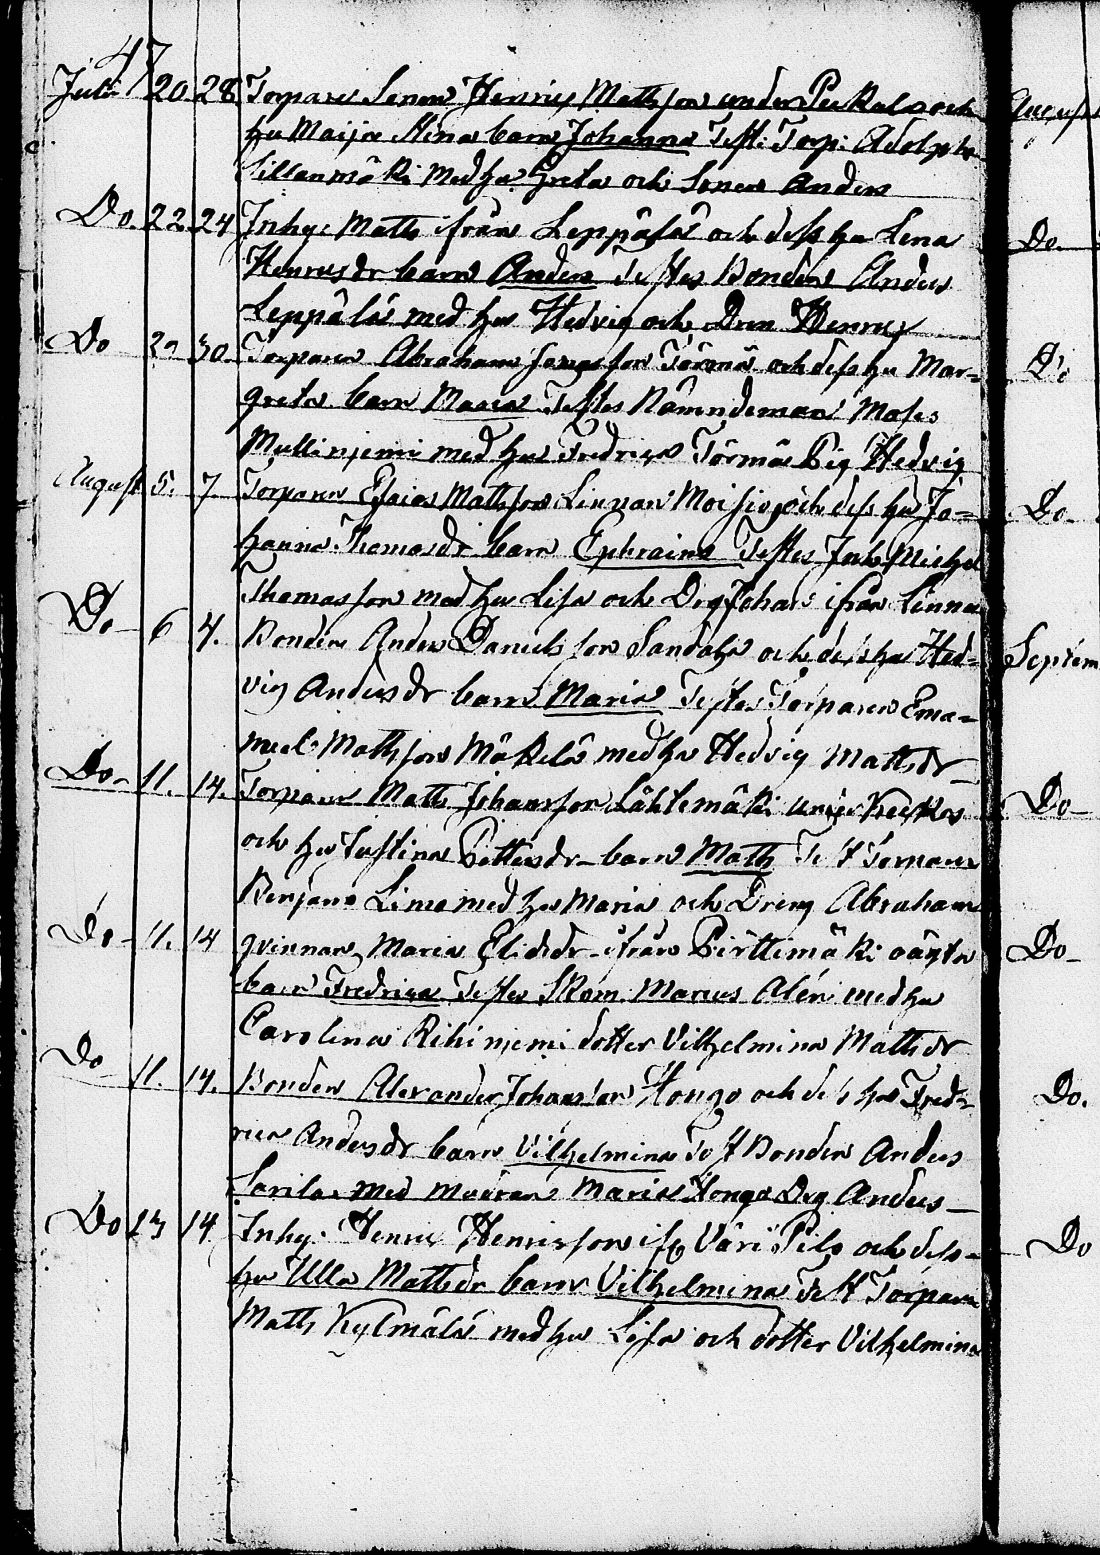 47
Juli 20 28 Torpare Sonen Henric Mathsson under Peckala och
hu Maija Stina barn Johanna Test: Torp: Adolph
Sillanmäki med hu Greta och Sonen Anders
Do. 22 24 Inhy: Maths ifrån Leppälä och dess hu Lena
Henricsdr barn Anders Testes Bonden Anders
Leppälä med hu Hedvig och Dren Henric
Do 30 Torparen Abraham Törmä och dess hu Mar=
greta barn Maria Testes Nämndeman Moses
Mullinjemi med hu Fredrica Törmä Pig Hedvig
August 5. 7. Torparen Esaias Mathsson Linnan Moisio och dess hu Jo=
hanna Thomasdr barn Ephraim Testes Inh Michel
Thomasson med hu Lisa och Drg Johan ifrån Linna
Do 6 4. Bonden Anders Danielsson Sandahr och dess hu Hed=
vig Andersdr barn Maria Testes Torparen Ema=
nuel Mathsson Mäkelä med hu Hedvig Mathsdr
Do 11. 14. Torparen Maths Johansson Lähtemäki under Keckos
och hu Justina Pettersdr barn Maths Test Torparen
Benjam Lima med hu Maria och Dreng Abraham
Do 11. 14 qvinnan Maria Eliasdr ifrån Pirttimäki oägta
barn Fredrica Testes Skom. Marcus Alén med hu
Carolina Rihinjemi dotter Vilhelmina Mathsdr
Do 11. 14. Bonden Alexander Johansson Hongo och dess hu Fred=
rica Andersdr barn Vilhelmina Test Bonden Anders
Sarila med modren Maria Hongo Drg Anders
Do 13 14 Inhy: Henric Henricsson Väri Pils och dess
hu Ulla Mathsdr barn Vilhelmina Test Torparen
Maths Kylmälä med hu Lisa och dotter Vilhelmina
August
Do
Do
Do
Septem
Do
Do
Do.
Do